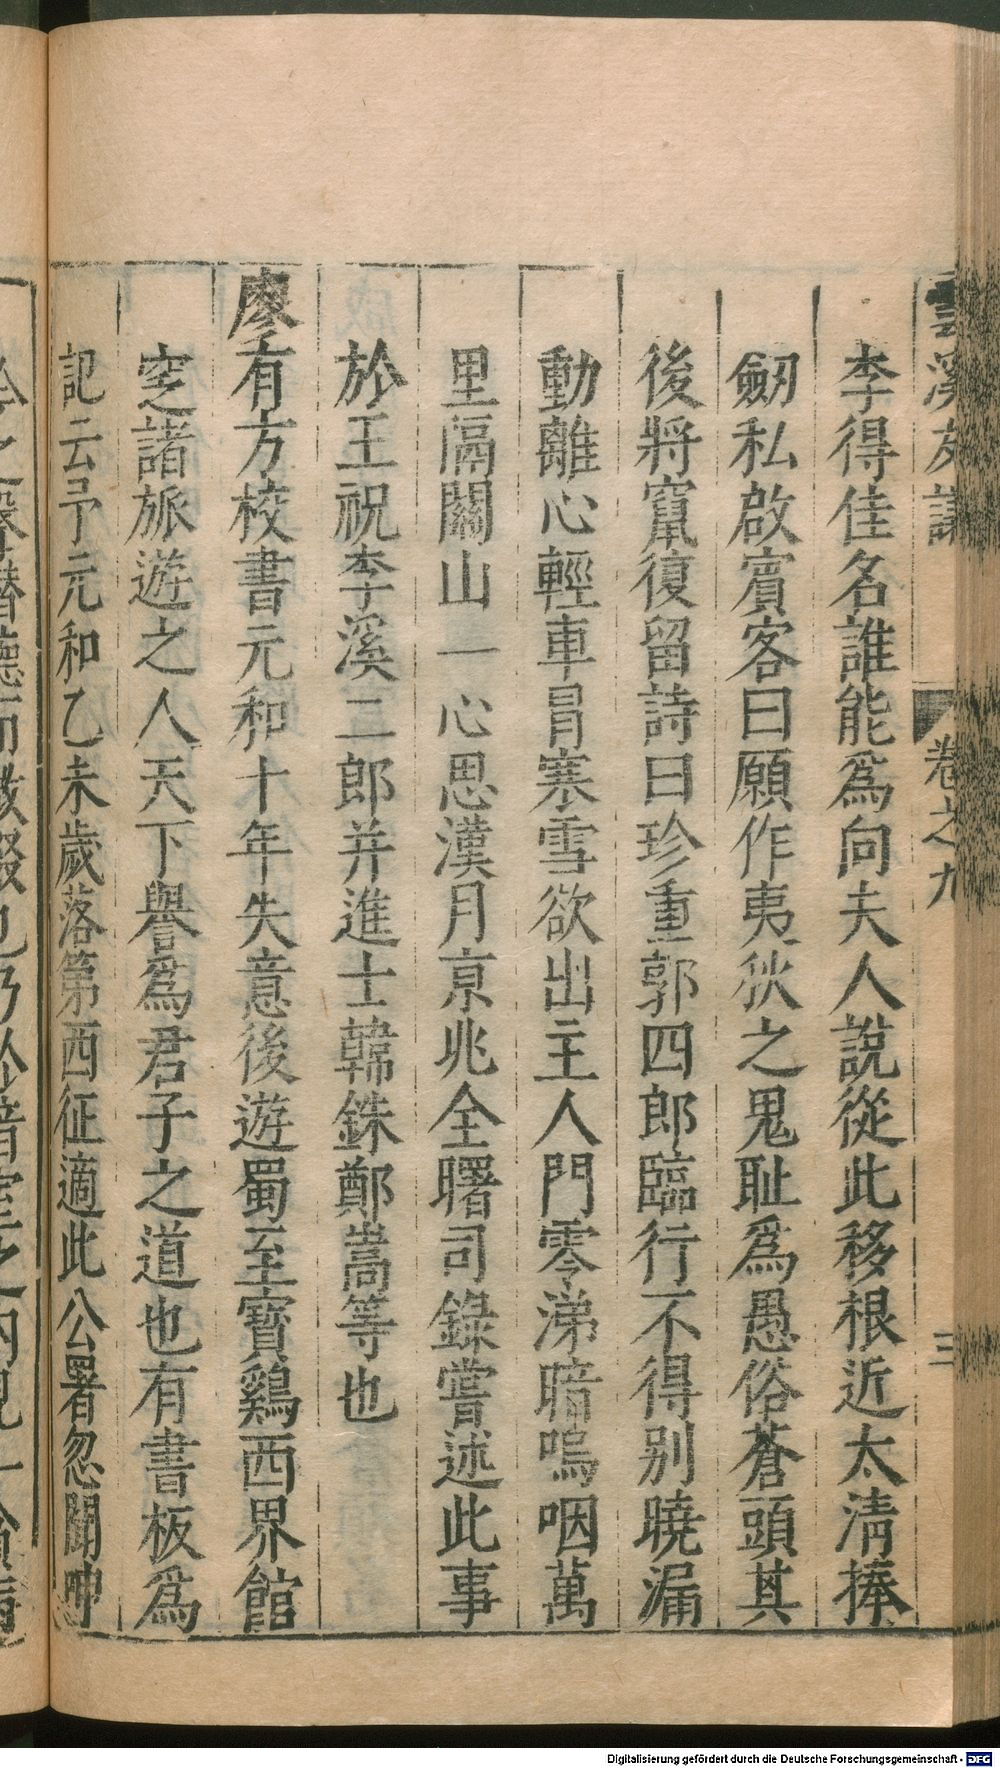 雲溪友議 卷之九 三
李得佳名誰能爲向夫人說從此移根近太淸捧
劒私啟賓客曰願作夷狄之鬼耻爲愚俗蒼頭其
後將竄復留詩曰珍重郭四郎臨行不得别曉漏
動離心輕車冐寒雪欲出主人門零涕暗嗚咽萬
里隔關山一心思漢月京兆全曙司錄嘗述此事
於王祝李溪二郎并進士韓銖鄭嵩等也
廖有方校書元和十年失意後遊蜀至寶鷄西界館
空諸旅遊之人天下譽爲君子之道也有書板爲
記云予元和乙未歲落第西征適此公署忽聞呻
Digitalisierung gefördert durch die Deutsche Forschungsgemeinschaft - DFG